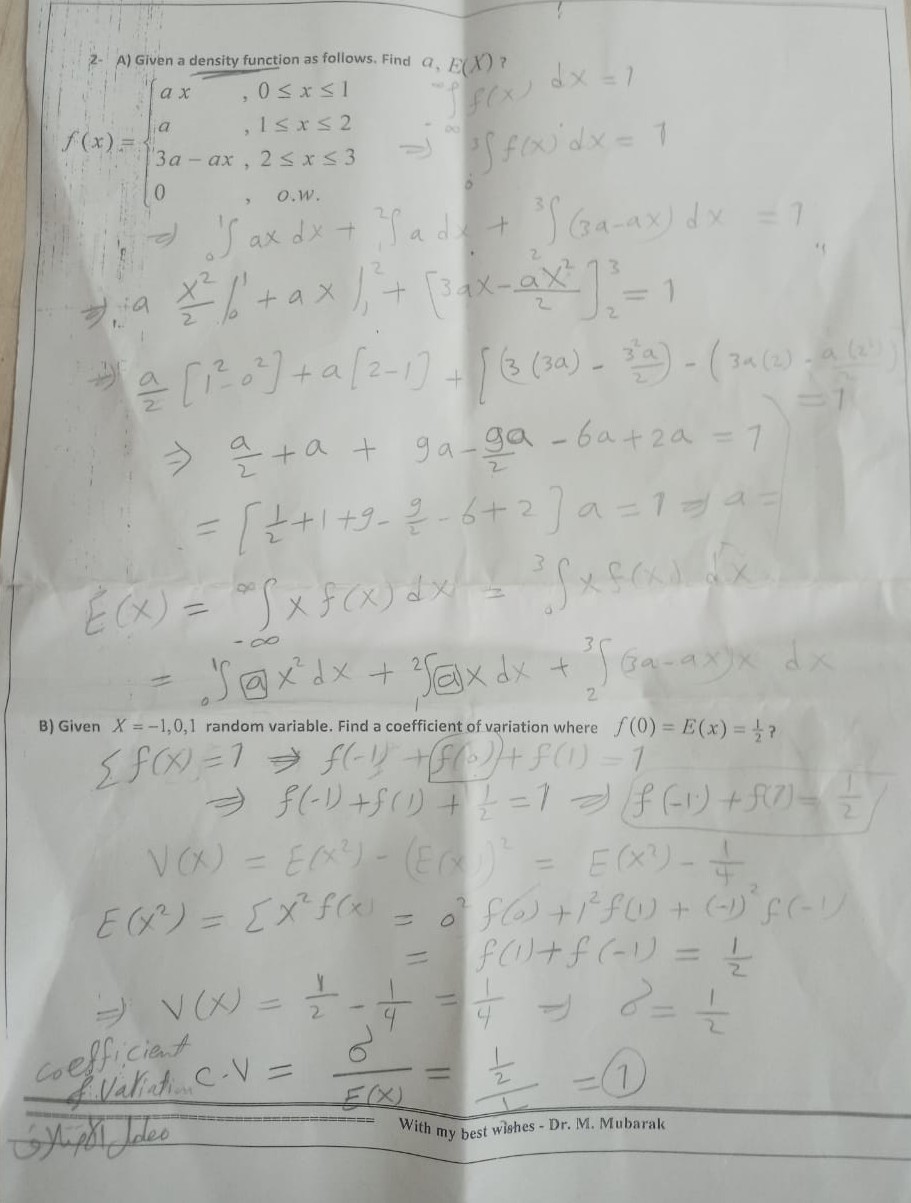 2- A) Given a density function as follows. Find a, E(X) ?
f(x) = { ax , 0 ≤ x ≤ 1
a , 1 ≤ x ≤ 2
3a − ax , 2 ≤ x ≤ 3
0 , o.w.
∫_{-∞}^{∞} f(x) dx = 1
⇒ ∫_0^3 f(x) dx = 1
⇒ ∫_0^1 ax dx + ∫_1^2 a dx + ∫_2^3 (3a-ax) dx = 1
⇒ a x²/2 |_0^1 + ax |_1^2 + [3ax - ax²/2]_2^3 = 1
⇒ a/2 [1² - 0²] + a[2-1] + [(3(3a) - 3²a/2) - (3a(2) - a(2²)/2) = 1
⇒ a/2 + a + 9a - 9a/2 - 6a + 2a = 1
= [1/2 + 1 + 9 - 9/2 - 6 + 2] a = 1 ⇒ a =
E(X) = ∫_{-∞}^{∞} x f(x) dx = ∫_0^3 x f(x) dx
= ∫_0^1 a x² dx + ∫_1^2 a x dx + ∫_2^3 (3a-ax)x dx
B) Given X = −1,0,1 random variable. Find a coefficient of variation where f(0) = E(x) = 1/2 ?
Σ f(x) = 1 ⇒ f(-1) + f(0) + f(1) = 1
⇒ f(-1) + f(1) + 1/2 = 1 ⇒ f(-1) + f(1) = 1/2
V(X) = E(X²) - (E(X))² = E(X²) - 1/4
E(X²) = Σ X² f(x) = 0² f(0) + 1² f(1) + (-1)² f(-1)
= f(1) + f(-1) = 1/2
⇒ V(X) = 1/2 - 1/4 = 1/4 ⇒ δ = 1/2
coefficient of Variation C.V = δ/E(X) = 1/2 / = 1
معامل الاختلاف
With my best wishes - Dr. M. Mubarak